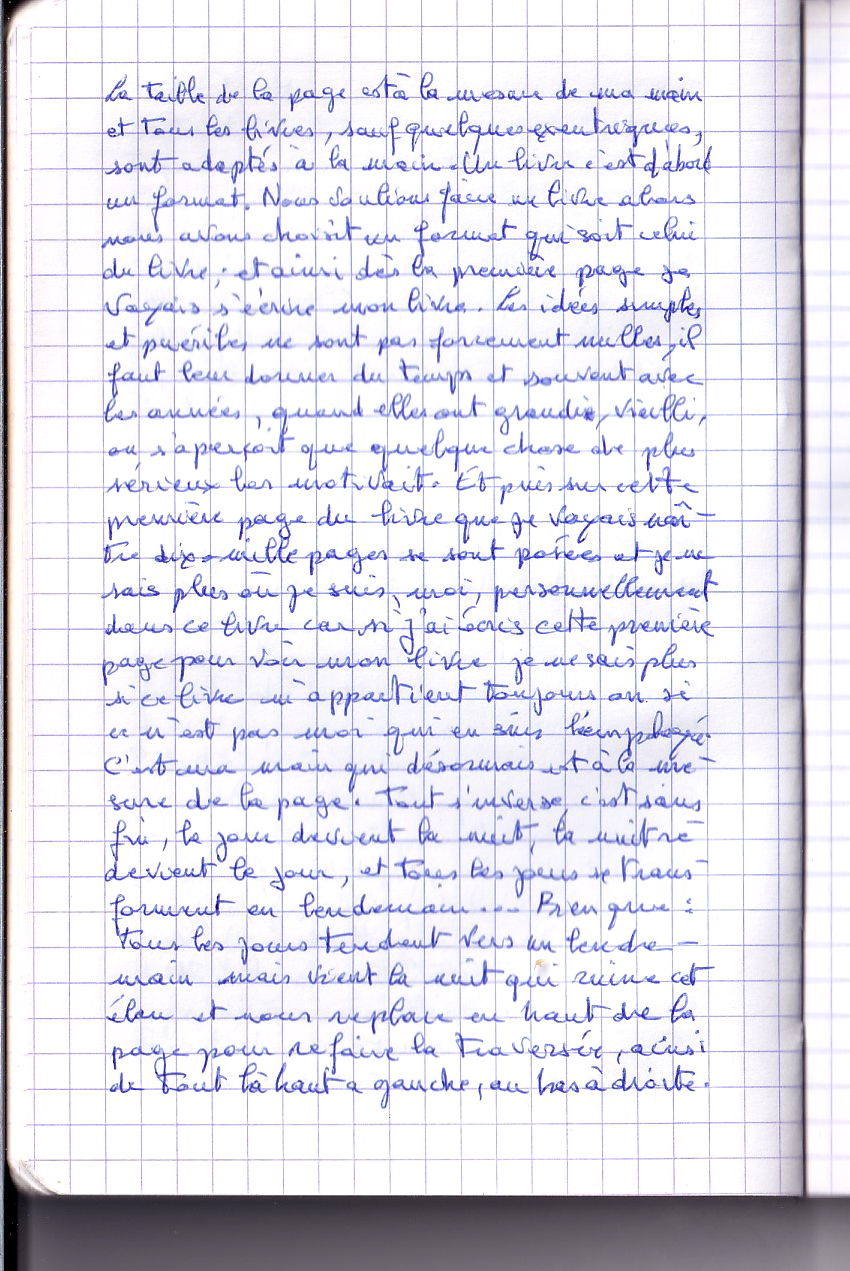 La taille de la page est à la mesure de ma main
et tous les livres, sauf quelques excentriques,
sont adaptés à la main. Un livre c'est d'abord
un format. Nous voulions faire un livre alors
nous avons choisit un format qui soit celui
du livre; et ainsi dès la première page je
voyais s'écrire mon livre. Les idées simples
et puériles ne sont pas forcement nulles, il
faut leur donner du temps et souvent avec
les années, quand elles ont grandie, vieilli,
on s'aperçoit que quelque chose de plus
sérieux les motivait. Et puis sur cette
première page du livre que je voyais naî-
tre dix-mille pages se sont posées et je ne
sais plus où je suis, moi, personnellement
dans ce livre car si j'ai écris cette première
page pour voir mon livre je ne sais plus
si ce livre m'appartient toujours ou si
ce n'est pas moi qui en suis l'employé.
C'est ma main qui désormais est à la me-
sure de la page. Tout s'inverse, c'est sans
fin, le jour devient la nuit, la nuit re-
devient le jour, et tous les jours se trans-
forment en lendemain... Bien que :
Tous les jours tendent vers un lende-
main mais vient la nuit qui ruine cet
élan et nous replace en haut de la
page pour refaire la traversée, ainsi
de tout là haut a gauche, au bas à droite.